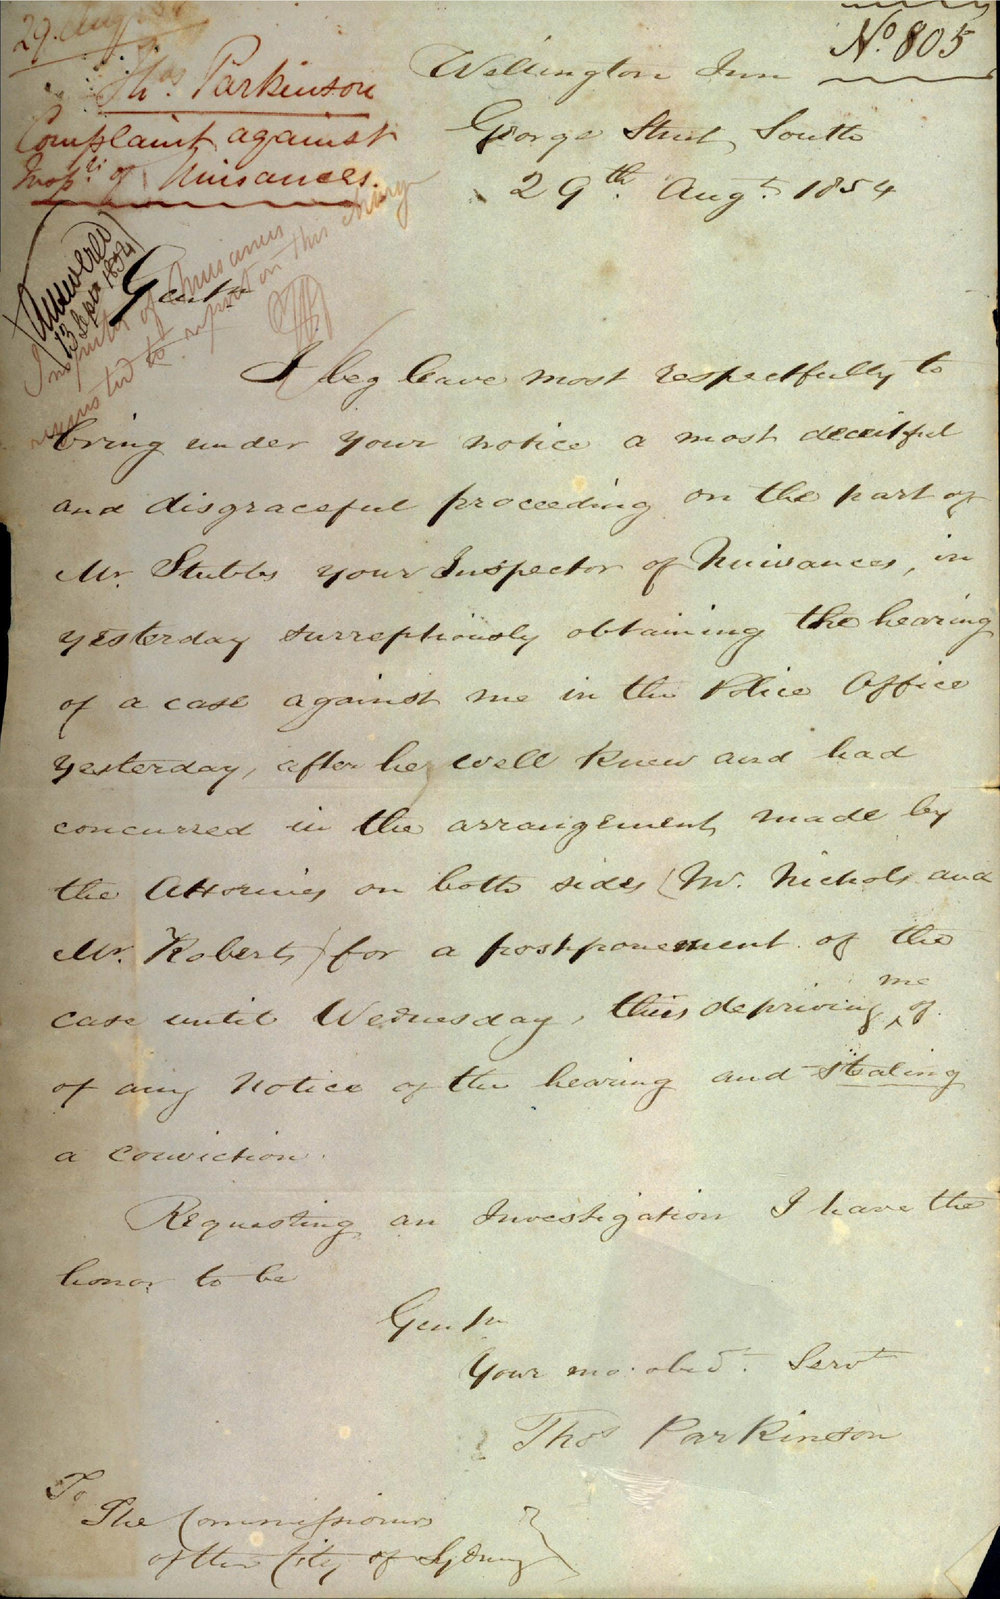 29. Aug
No. 805
Thos. Parkinson
Complaint against
Inspr. of Nuisances.
Wellington Inn
George Street South
29th. Augt. 1854
Answered
13 Sepr 1854
Inspector of Nuisances
requested to report on this
Gentn
I beg leave most respectfully to
bring under your notice a most deceitful
and disgraceful proceeding on the part of
Mr. Stubbs your Inspector of Nuisances, in
yesterday surreptiously obtaining the hearing
of a case against me in the Police Office
yesterday, after he well knew and had
concurred in the arrangement made by
the Attornies on both sides (Mr. Nichols and
Mr. Roberts) for a postponement of the
case until Wednesday, thus depriving me of
of any notice of the hearing and stealing
a conviction.
Requesting an Investigation I have the
honor to be
Gentn
Your mo. obedt. Servt
Thos Parkinson
To
The Commissioners
of the City of Sydney